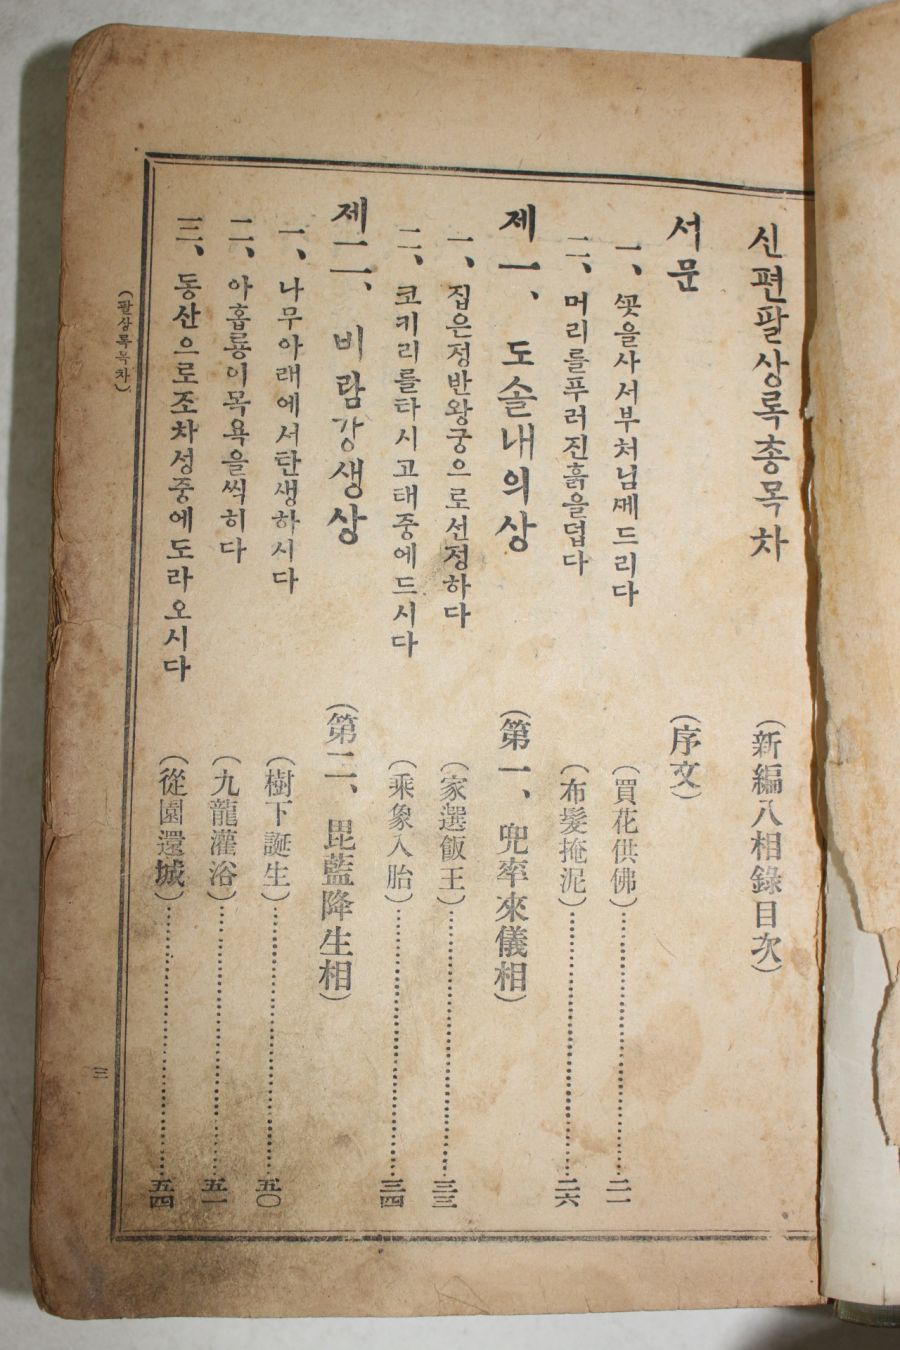 신편팔상록총목차 (新編八相錄目次)
서문 (序文)
一、꼿을사서부처님께드리다 (買花供佛)…………二一
二、머리를푸러진흙을덥다 (布髮掩泥)…………二六
제一、도솔내의상 (第一、兜率來儀相)
一、집은정반왕궁으로선정하다 (家選飯王)…………三三
二、코키리를타시고태중에드시다 (乘象入胎)…………三四
제二、비람강생상 (第二、毘藍降生相)
一、나무아래에서탄생하시다 (樹下誕生)…………五〇
二、아홉룡이목욕을씩히다 (九龍灌浴)…………五一
三、동산으로조차성중에도라오시다 (從園還城)…………五四
(팔상록목차)
三